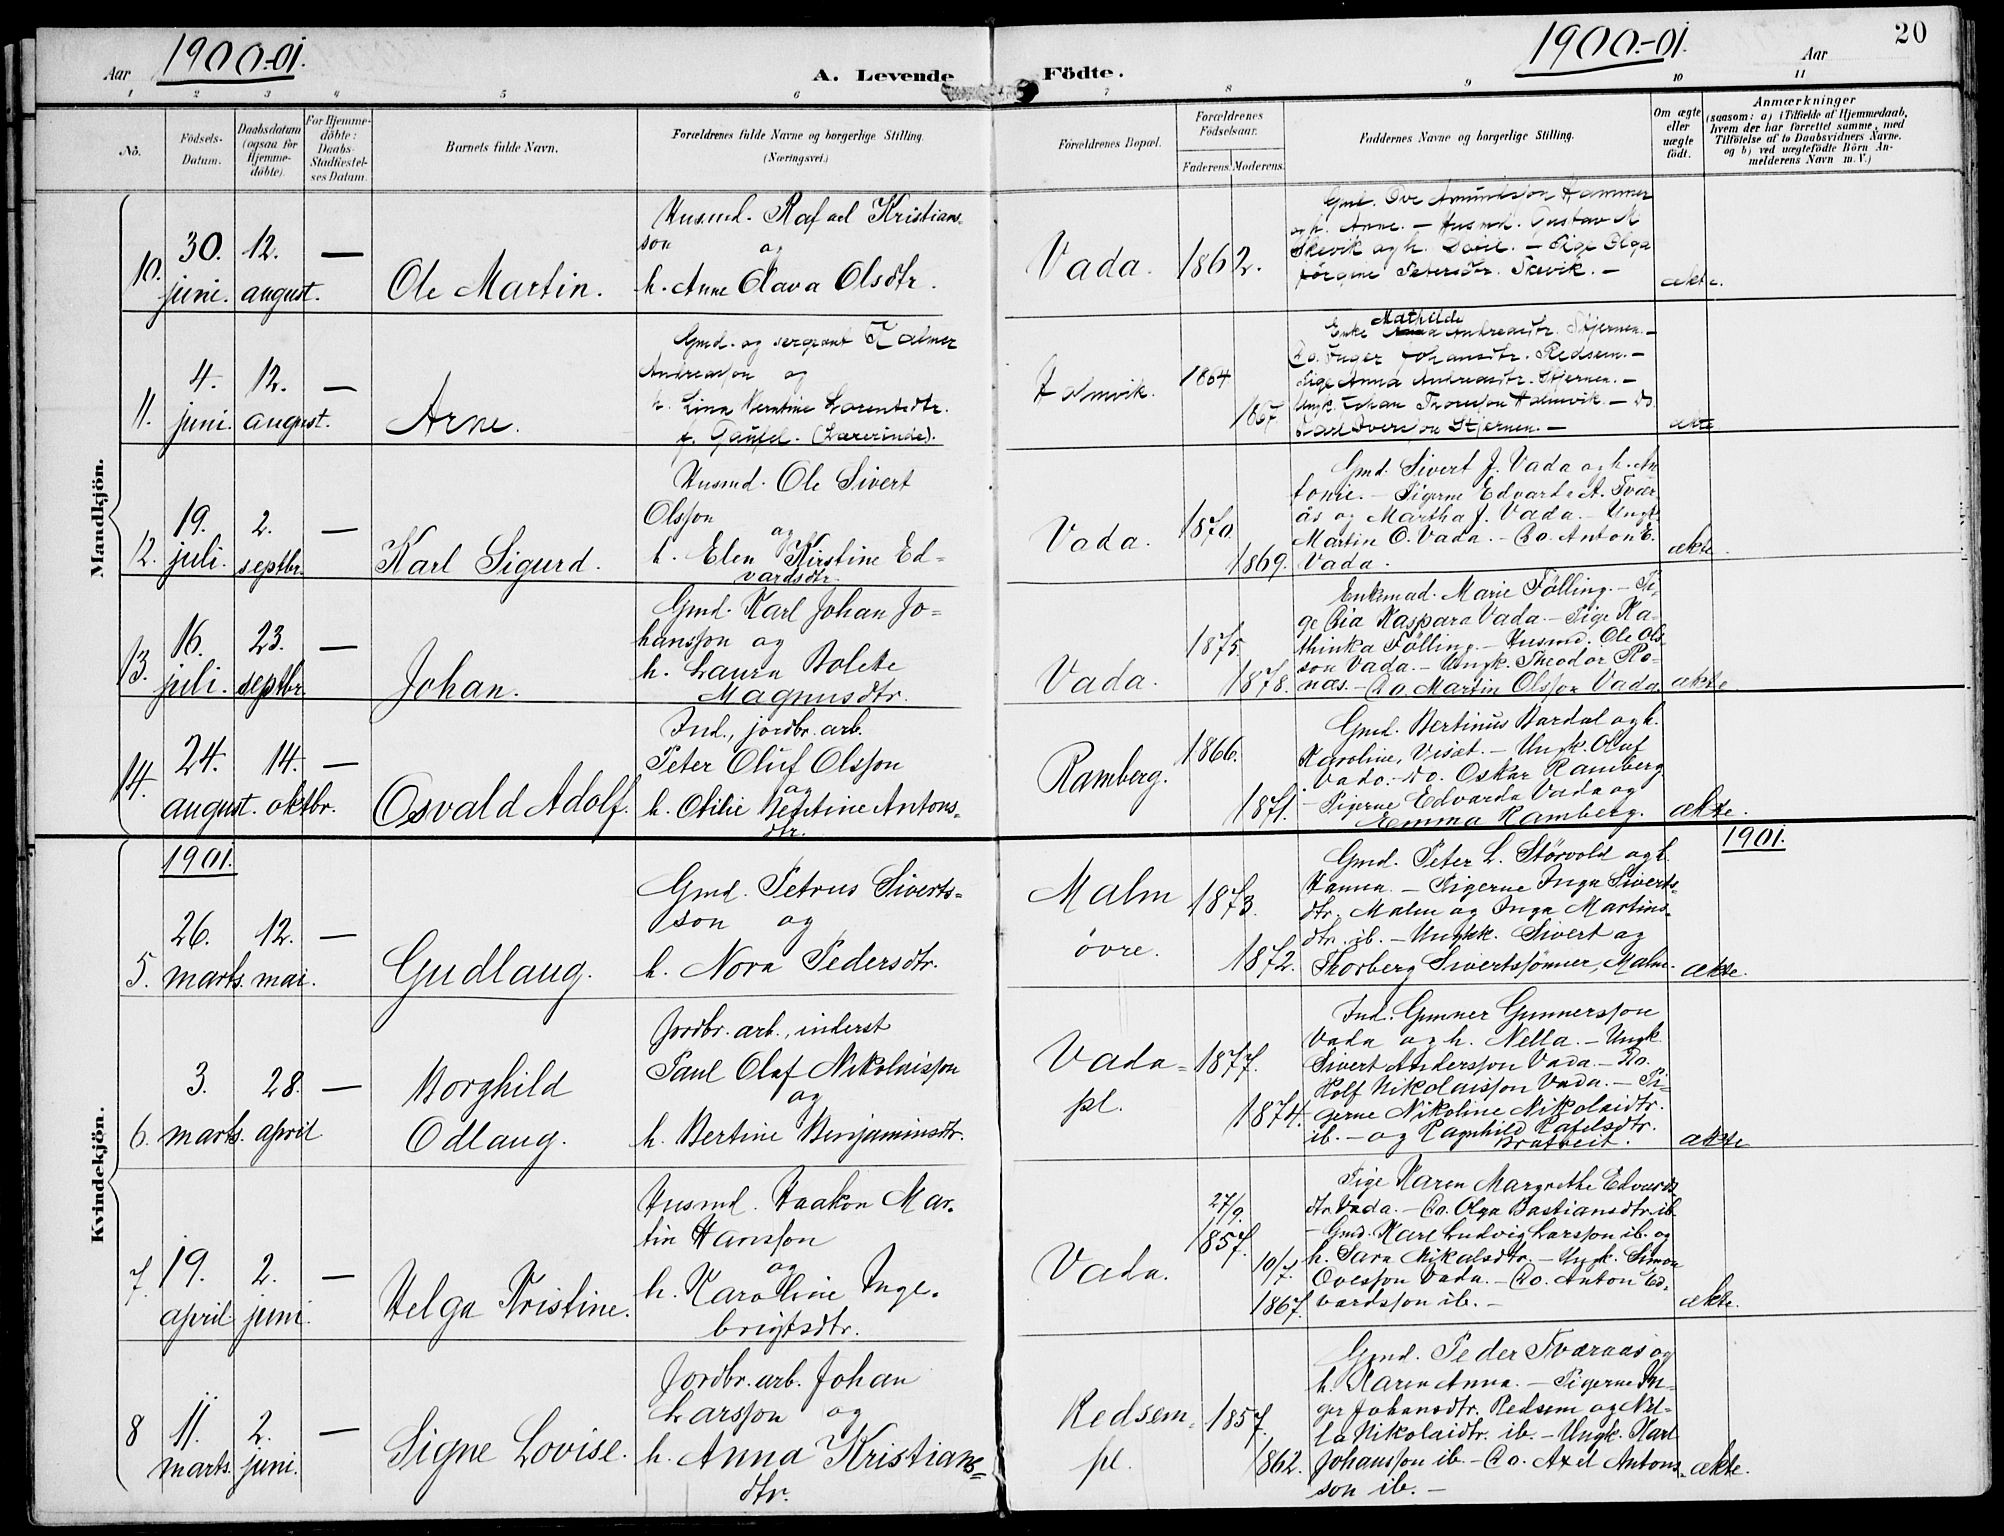 1900-01.
Aar
A. Levende Födte.
1900-01.
Aar
20
1 2 3 4 5 6 7 8 9 10 11
No.
Födsels-
Datum.
Daabsdatum
(ogsaa for
Hjemme-
döbte).
For Hjemme-
döbte:
Daabs-
Stadfæstel-
ses Datum.
Barnets fulde Navn.
Forældrenes fulde Navne og borgerlige Stilling.
(Næringsvei.)
Forældrenes Bopæl.
Forældrenes
Födselsaar.
Faderens.
Moderens.
Faddernes Navne og borgerlige Stilling.
Om ægte
eller
uægte
födt.
Anmærkninger
(saasom: a) i Tilfælde af Hjemmedaab,
hvem der har forrettet samme, med
Tilföielse af to Daabsvidners Navne.
og b) ved uægtefödte Börn An-
melderens Navn m. V.)
Mandkjön.
10.
30.
juni.
12.
august.
—
Ole Martin.
Husmd. Rafael Kristians-
son
og
h. Anne Olava Olsdtr.
Vada.
1862.
Gmd. Ove Amundsson Hammer
og h. Anne. — Husmd. Gustav M
Skevik og h. — Pige Olga
Jörgine Petersdtr. Skevik. —
ækte.
11.
4.
juni.
12.
august.
—
Arne.
Gmd. og sergeant Halmer
Andreasson og
h. Lina Berntine Lorentsdtr.
f. (Lærerinde).
Holmvik.
1864
1867
Mathilde
Enke Andreasdtr. Stjernen. —
Do. Inger Johansdtr. Redsem. —
Pige Anna Andreasdtr. Stjernen. —
Ungk. Johan Holmvik. — Do.
Karl Iversson Stjernen. —
ækte
12.
19.
juli.
2.
septbr.
—
Karl Sigurd.
Husmd. Ole Sivert
Olsson
og
h. Elen Kirstine Ed-
vardsdtr.
Vada.
1870.
1869.
Gmd. Sivert J. Vada og h. An
tonie. — Pigerne Edvarda A. Tvær
ås og Martha J. Vada. — Ungk.
Martin O. Vada. — Do. Anton E.
Vada.
ækte.
13.
16.
juli.
23.
septbr.
—
Johan.
Gmd. Karl Johan Jo-
hansson og
h. Laura Bolete
Magnusdtr.
Vada.
1875.
1878.
Enkemad. Marie Følling. — Pi-
ge Pia Kaspara Vada — Pige Ka-
thinka Følling. — Husmd. Ole Ols-
son Vada. — Ungk. Theodor Ro-
næs. — Do. Martin Olsson Vada.
ækte
14.
24.
august.
14.
oktbr.
—
Osvald Adolf.
Ind., jordbr. arb.
Peter Oluf Olsson
og
h. Otilie Berntine Antons-
dtr.
Ramberg.
1866.
1871.
Gmd. Bertinus Bardal og h.
Karoline, Visæt. — Ungk. Oluf
Vada. — Do. Oskar Ramberg
— Pigerne Edvarda Vada og
Emma Ramberg.
ækte.
Kvindekjön.
1901.
1901.
5.
26.
marts.
12.
mai.
—
Gudlaug.
Gmd. Petrus Siverts-
son og
h. Nora Pedersdtr.
Malm
övre.
1873.
1872.
Gmd. Peter L. Störvold og h.
Hanna. — Pigerne Inga Siverts-
dtr. Malm og Inga Martins-
dtr. ib. — Ungkk. Sivert og
Thorberg Sivertssönner, Malm.
ækte.
6.
3.
marts.
28.
april
—
Borghild
Odlaug.
Jordbr. arb., inderst
Paul Olaf Nikolaisson
og
h. Bertine Benjaminsdtr.
Vada-
pl.
1877.
1874.
Ind. Gunner Gunnersson
Vada og h. Nella. — Ungk.
Sivert Andersson Vada. — Do.
Rolf Nikolaisson Vada. — Pi-
gerne Nikoline Nikolaidtr.
ib. — og Ragnhild Rafelsdtr.
Bratreit.
ækte
7.
19.
april
2.
juni.
—
Helga Kristine.
Husmd. Haakon Mar-
tin Hansson
og
h. Karoline Inge-
brigtsdtr.
Vada.
27/9.
1857.
10/7.
1867.
Pige Karen Margrethe Edvards-
dtr. Vada. — Do. Olga Bastiansdtr. ib.
— Gmd. Karl Ludvig Larsson ib. og
h. Sara Nikolsdtr. — Ungk. Simon
Ovesson Vada. — Do. Anton Ed-
vardsson ib. —
ækte.
8
11.
marts.
2.
juni.
—
Signe Lovise.
Jordbr. arb. Johan
Larsson og
h. Anna Kristians-
dtr.
Redsem-
pl.
1857.
1862.
Gmd. Peder Tværaas og
h. Karen Anna. — Pigerne In-
ger Johansdtr. Redsem og Nel-
la Nikolaidtr. ib. — Ungk. Karl
Johansson ib. — Do. Axel Antons-
son ib. —
ækte.